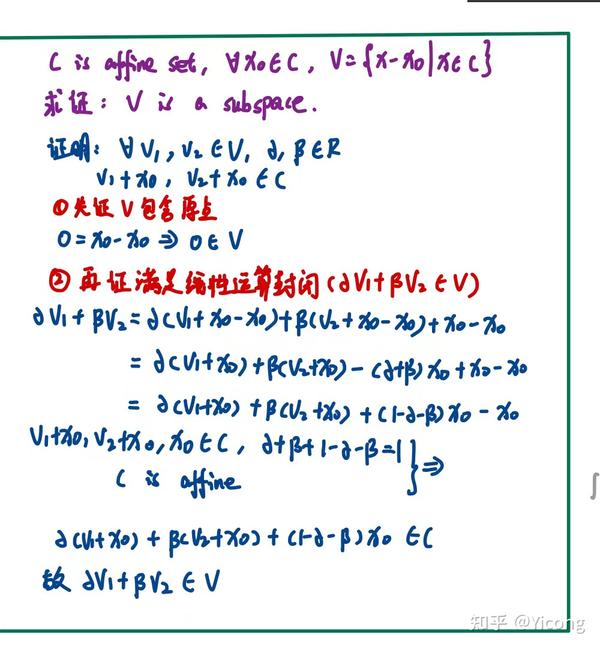 C is affine set, ∀x₀∈C, V={x-x₀|x∈C}
求证: V is a subspace.
证明: ∀V₁,V₂∈V, ∂,β∈R
V₁+x₀, V₂+x₀∈C
①先证V包含原点
0=x₀-x₀⇒0∈V
②再证满足线性运算封闭(∂V₁+βV₂∈V)
∂V₁+βV₂=∂(V₁+x₀-x₀)+β(V₂+x₀-x₀)+x₀-x₀
=∂(V₁+x₀)+β(V₂+x₀)-(∂+β)x₀+x₀-x₀
=∂(V₁+x₀)+β(V₂+x₀)+(1-∂-β)x₀-x₀
V₁+x₀,V₂+x₀,x₀∈C, ∂+β+1-∂-β=1}⇒
C is affine
∂(V₁+x₀)+β(V₂+x₀)+(1-∂-β)x₀∈C
故∂V₁+βV₂∈V
知乎 @Yicong